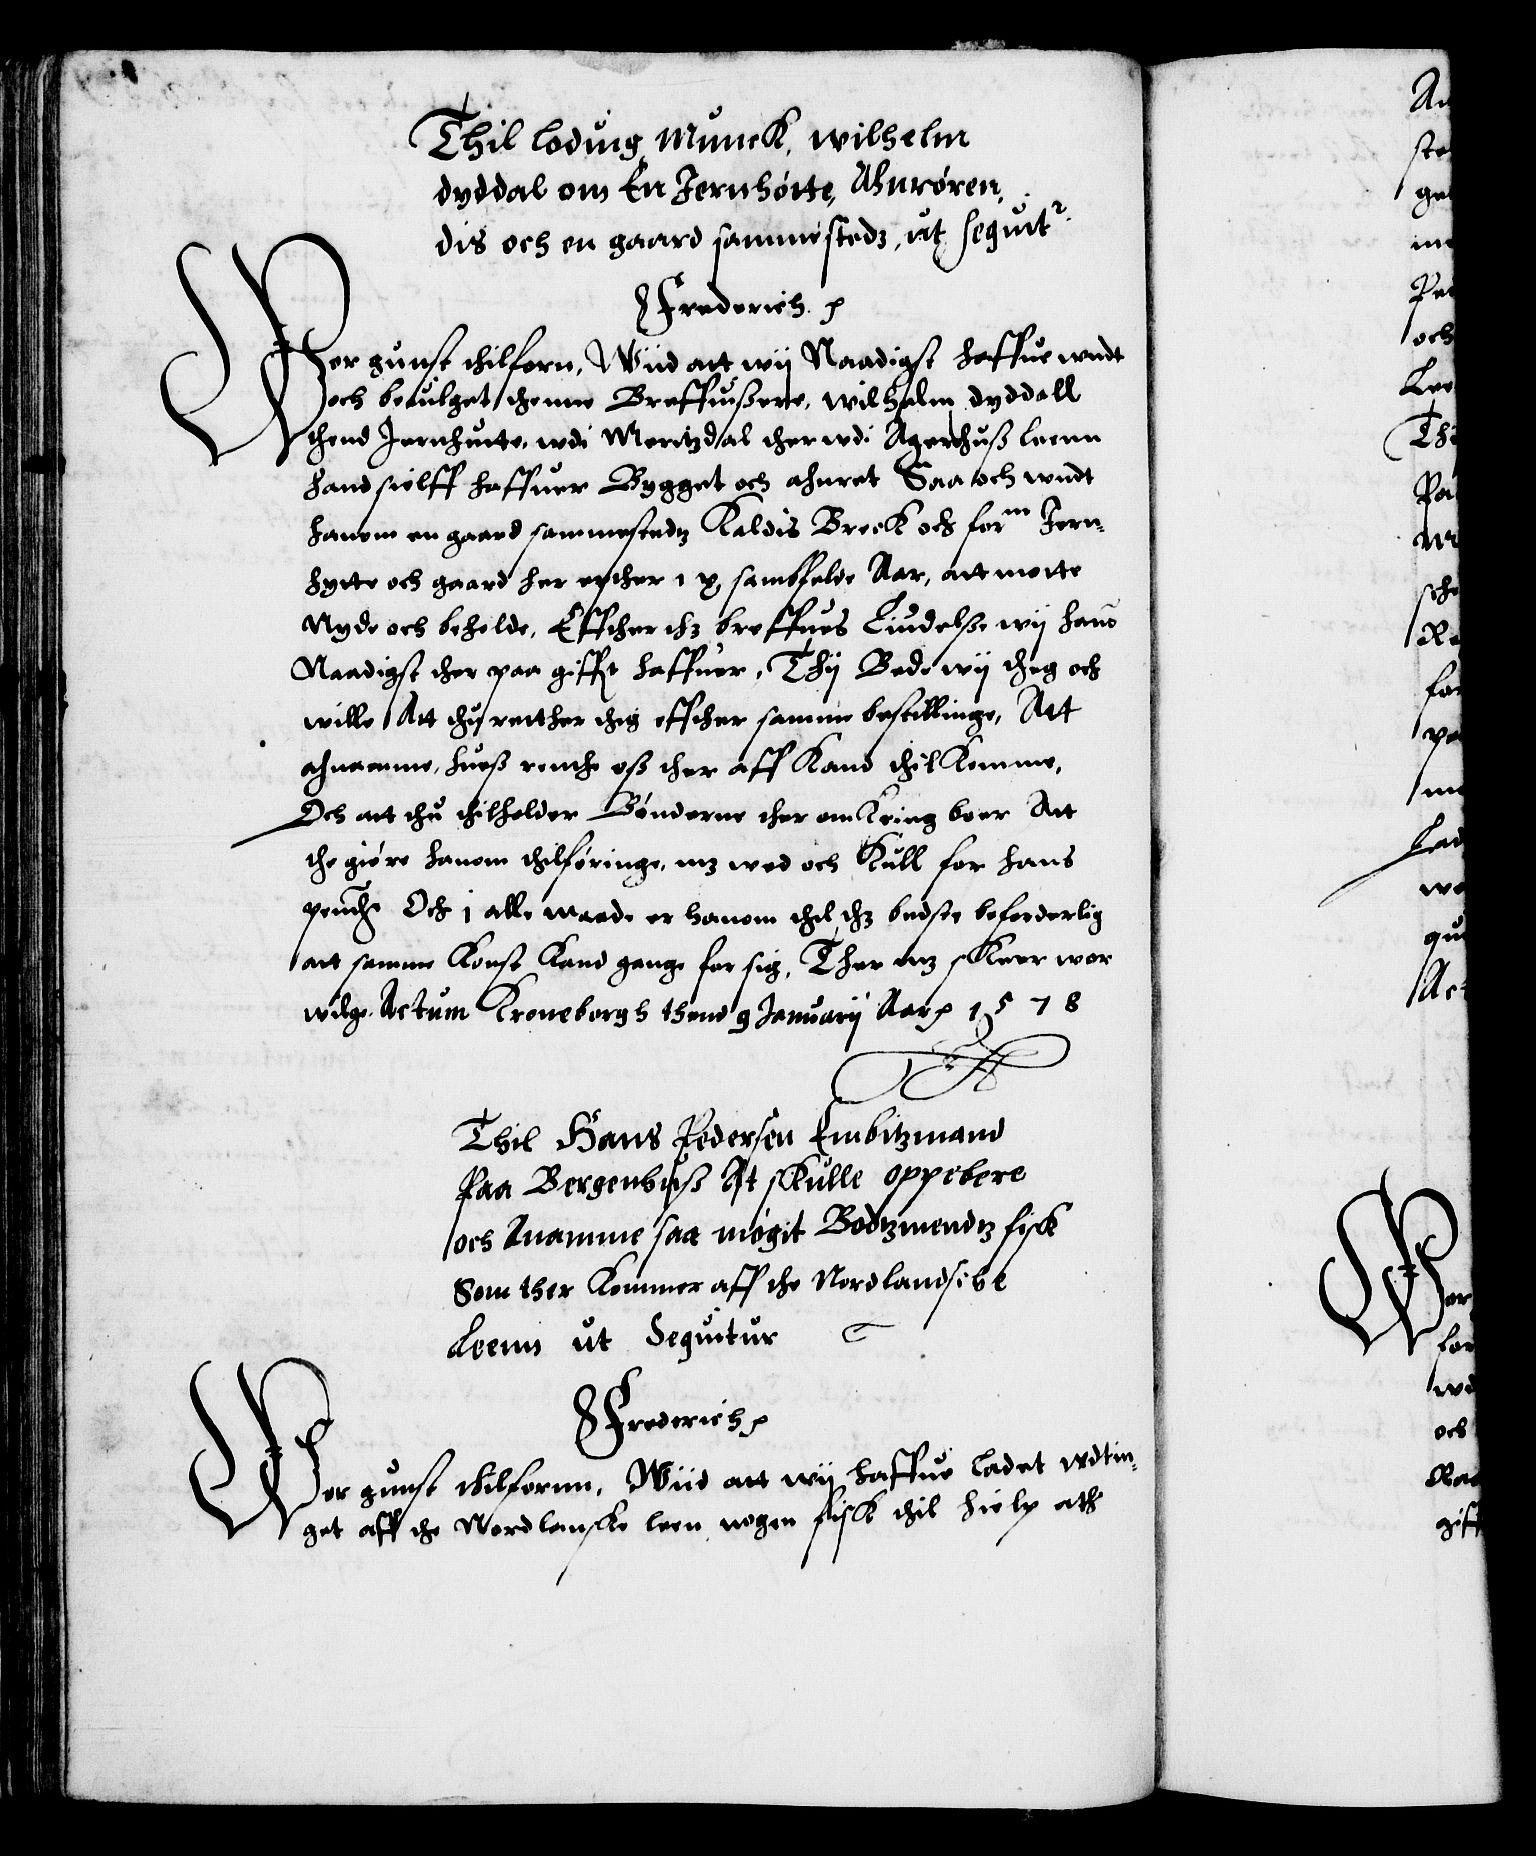 Thil lodug Munck, wilhelm
dyddal om En Jernhøtte, Anrøren,
dis och en gaard sammestedz, ut sequit
Frederich p
Wor gunst thilforn, Wiid att wij Naadigst haffue wndt
och beuilget thenne Breffuißere, wilhelm dyddall
thend Jernhutte, wdi Moritzdal ther wdi Agerhuß leenn
hand sielff haffuer Bygget och ahnret Saa och wndt
hanom en gaard sammestedz Kaldis Breck och for^m Jern-
hytte och gaard her epther i x samfelde Aar, att motte
Nyde och beholde, Effther thz breffues Liudelße wij hanˢ
Naadigst ther paa gifft haffuer, Thij Bede wij theg och
wille Att thu retther theg effther samme bestillinge, Att
ahnamme, hueß renthe oß ther aff Kand thil Komme,
Och att thu thilholder Bønderne ther omkring boer Att
the giøre hanom thilføringe, mz wed och Kull for hans
pendˢ Och i alle maade er hanom thil thz bedste beforderlig
att samme Konst Kand gange for sig, Ther mz skeer wor
wilge. Actum Kroneborgh thend 9 Januarij Aar p 1578
Thil Hans Pedersen Embitzmand
Paa Bergenhuß At skulle oppebere
och Anamme saa møgit Bodtzmendtz fisk
Som ther Kommer aff the Nordlandsche
Leenn ut Sequitur
Frederich p
Wor gunst thilfornn, Wiid att wij haffue ladet wdtin-
get aff the Nordlanske leen nogen fisk thil hielp ath